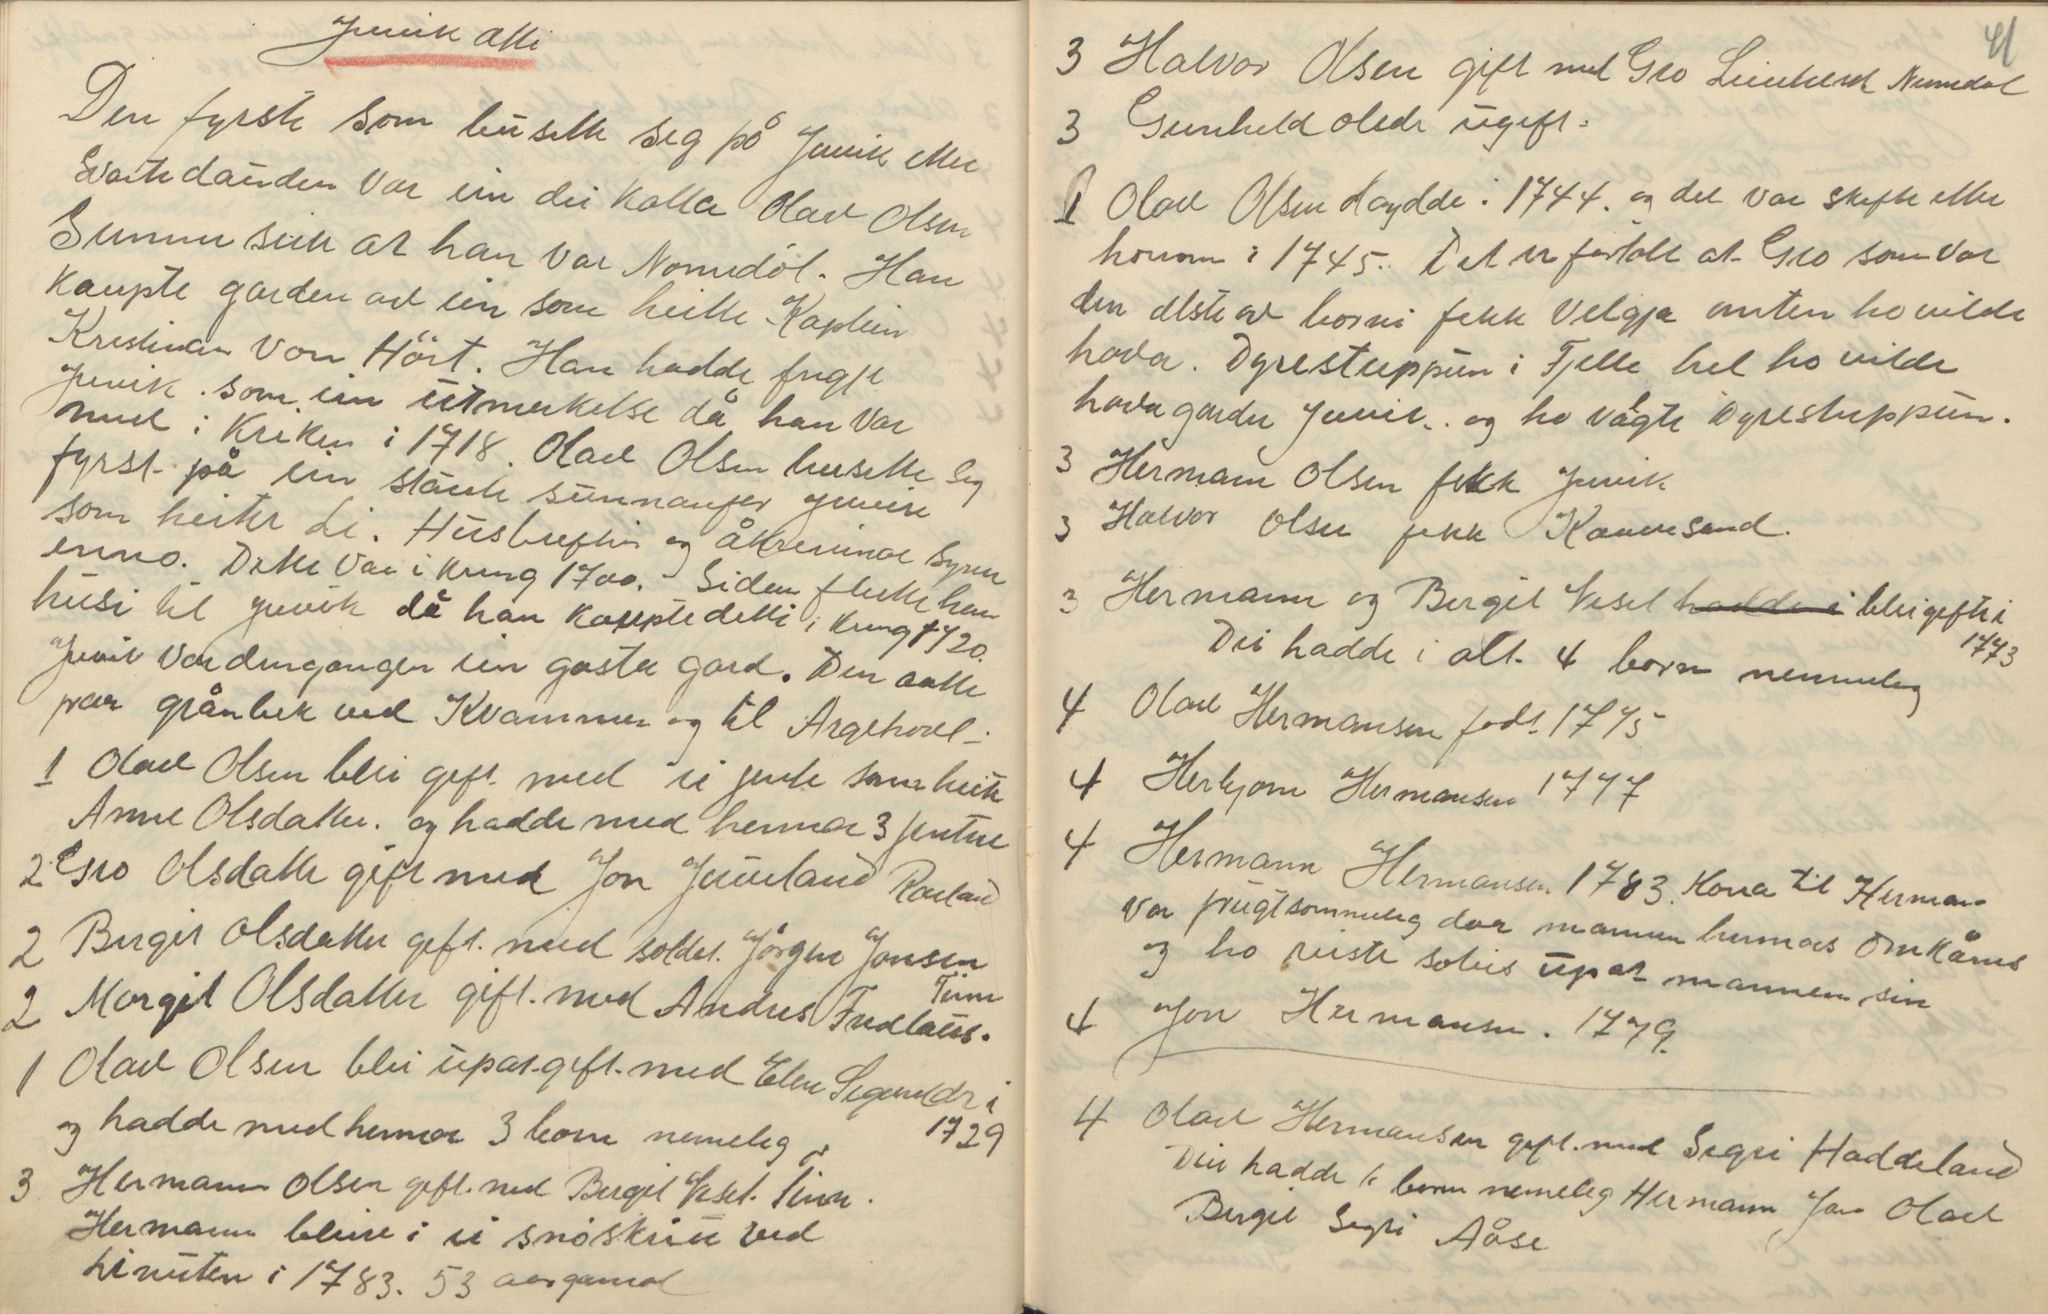 Juvik ætti
Den fyrste som busette seg på Juvik etter
Svartedauden var ein dei kalla Olav Olsen
Sumue seier at han var Numedøl. Han
kaupte garden av ein som heitte Kaptein
Kristian von Hört. Han hadde fengje
Juvik som ein utmerkelse då han var
med i Kriken i 1718. Olav Olsen busette seg
fyrst på ein stad sunnanfer Juvik
som heiter Li. Hustuftin og åkreninar syner
enno. Dette var i kring 1700. Siden flutte han
husi til Juvik då han kaupte detti i kring 1720.
Juvik var dengongen ein gasta gard. Den aatte
fraa grånbek ved Kvammen og til Argehovd -
1 Olav Olsen blei gift med ei jente som heite
Anne Olsdatter. og hadde med hennar 3 jentur
2 Gro Olsdatter gift med Jon Juveland Rauland
2 Bergit Olsdatter gift. med soldat. Jörgen Jonsen
Tinn
2 Margit Olsdatter gift. med Andres Frølaus.
1 Olav Olsen blei upat-gift. med Elen Sigurddr i
1729
og hadde med hennar 3 born nemeleg
3 Hermann Olsen gift. med Bergit Vesl. Tinn.
Hermann bleiv i ei snöskrie ved
Linuten i 1783. 53 aar gamal
41
3 Halvor Olsen gift med Gro Numedal
3 Gunhild olsdr ugift.
1 Olav Olsen døydde i 1744. og det var skifte etter
honom i 1745. Det er fortalt at Gro som var
den elste av borni fekk velgja anten ho vilde
hava. Dyrestuppun i Fjelle hel ho vilde
hava garden Juvik. og ho vågte Dyrestuppun.
3 Hermann Olsen fekk Juvik
3 Halvor Olsen fekk Kauvesand.
3 Hermann og Bergit Vesl hadde i blei gifte i
1773
Dei hadde i alt. 4 born nemmeleg
4 Olav Hermansen født 1775
4 Herbjorn Hermansen 1777
4 Hermann Hermansen 1783. Kona til Herman
var frugtsommeleg daa mannen hennas omkåms
og ho reiste soleis upat mannen sin
4 Jon Hermansen. 1779.
4 Olav Hermansen gift. med Sigri Haddeland
Dei hadde 6 born nemeleg Hermann Jon Olav
Bergit Sigri Aåse